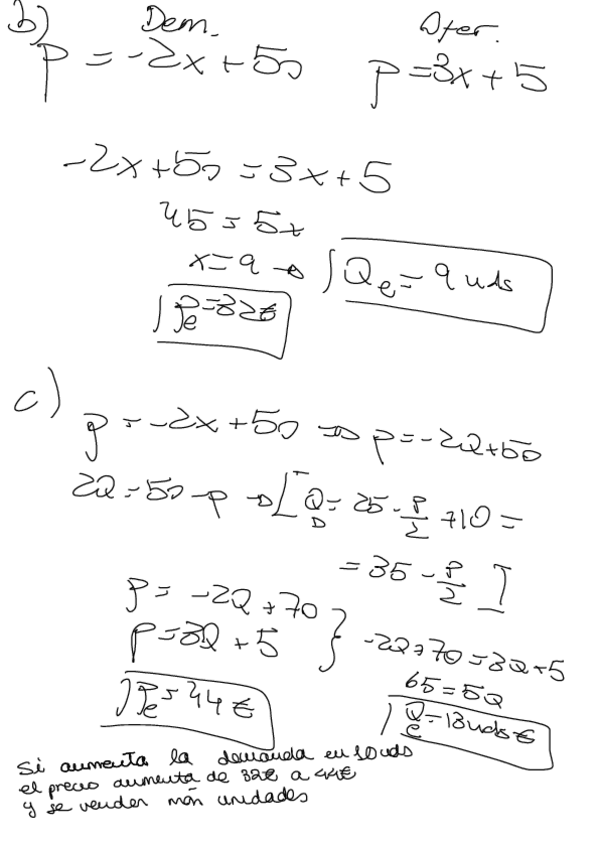 b) Dem. Ofer.
p = -2x + 50 p = 3x + 5
-2x + 50 = 3x + 5
45 = 5x
x = 9 → Qe = 9 uds
pe = 32€
c) p = -2x + 50 ⇒ p = -2Q + 50
2Q = 50 - p → [QD = 25 - p/2 + 10 =
= 35 - p/2]
p = -2Q + 70
p = 3Q + 5 } -2Q + 70 = 3Q + 5
65 = 5Q
pe = 44 € Qe = 13 uds €
Si aumenta la demanda en 10 uds
el precio aumenta de 32€ a 44€
y se venden más unidades